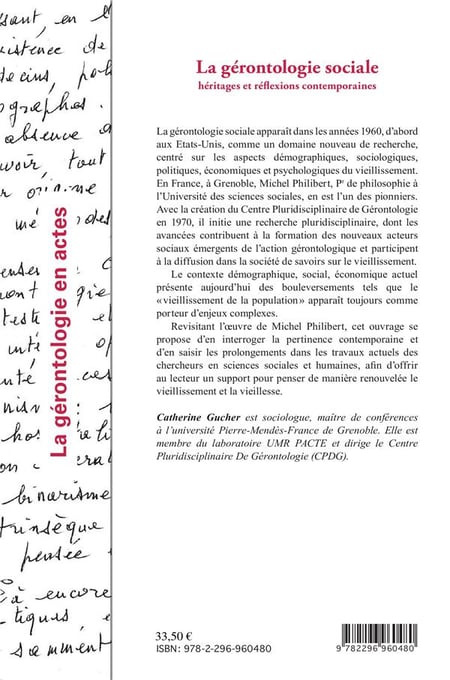 La gérontologie sociale
héritages et réflexions contemporaines
La gérontologie sociale apparaît dans les années 1960, d'abord
aux Etats-Unis, comme un domaine nouveau de recherche,
centré sur les aspects démographiques, sociologiques,
politiques, économiques et psychologiques du vieillissement.
En France, à Grenoble, Michel Philibert, Pr de philosophie à
l'Université des sciences sociales, en est l'un des pionniers.
Avec la création du Centre Pluridisciplinaire de Gérontologie
en 1970, il initie une recherche pluridisciplinaire, dont les
avancées contribuent à la formation des nouveaux acteurs
sociaux émergents de l'action gérontologique et participent
à la diffusion dans la société de savoirs sur le vieillissement.
Le contexte démographique, social, économique actuel
présente aujourd'hui des bouleversements tels que le
« vieillissement de la population » apparaît toujours comme
porteur d'enjeux complexes.
Revisitant l'œuvre de Michel Philibert, cet ouvrage se
propose d'en interroger la pertinence contemporaine et
d'en saisir les prolongements dans les travaux actuels des
chercheurs en sciences sociales et humaines, afin d'offrir
au lecteur un support pour penser de manière renouvelée le
vieillissement et la vieillesse.
Catherine Gucher est sociologue, maître de conférences
à l'université Pierre-Mendès-France de Grenoble. Elle est
membre du laboratoire UMR PACTE et dirige le Centre
Pluridisciplinaire De Gérontologie (CPDG).
33,50 €
ISBN : 978-2-296-960480
9 782296 960480
La gérontologie en actes
sant, en
istence de
decins, pol
ographes.
absence
voir, tout
mé
binarisme
trinsèque
pensée
à encore
tiques,
samment